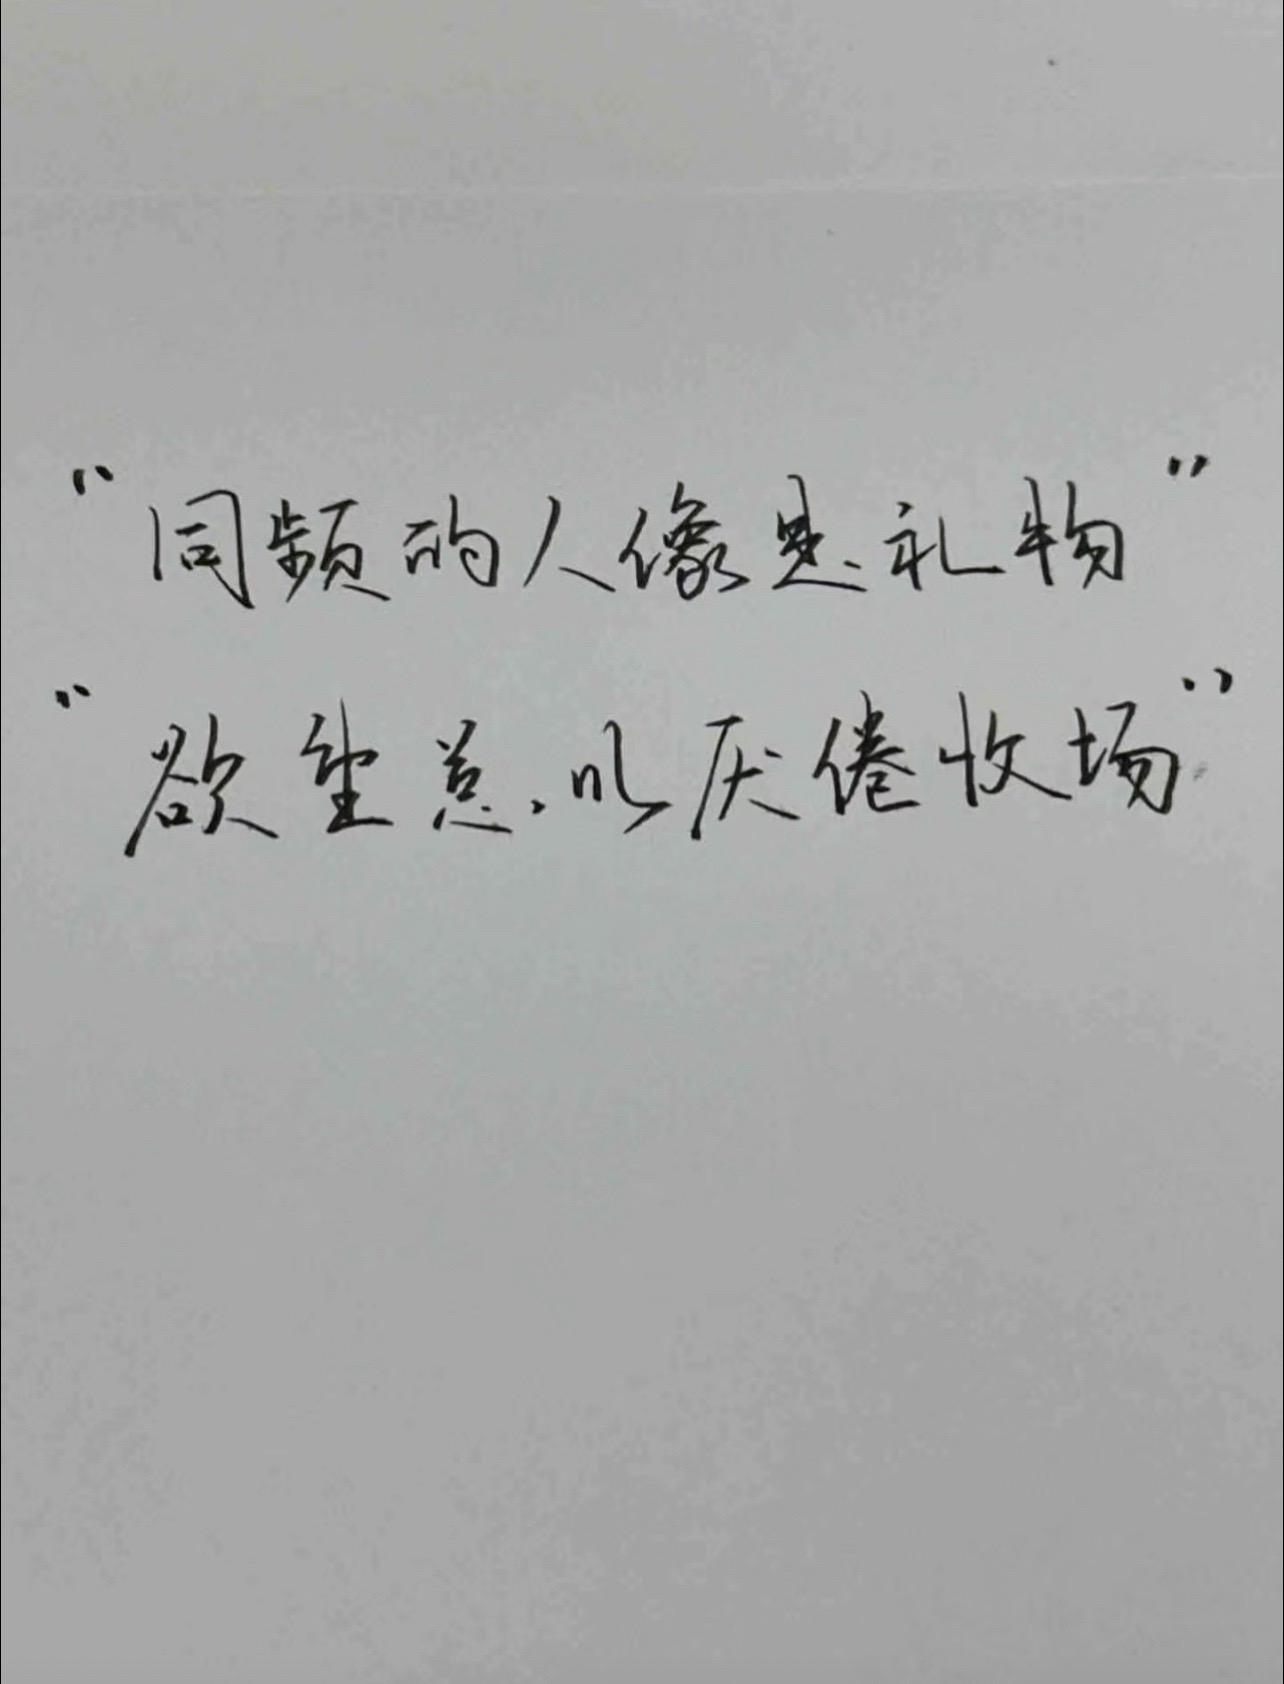 “同频的人像是礼物”
“欲望总以厌倦收场”